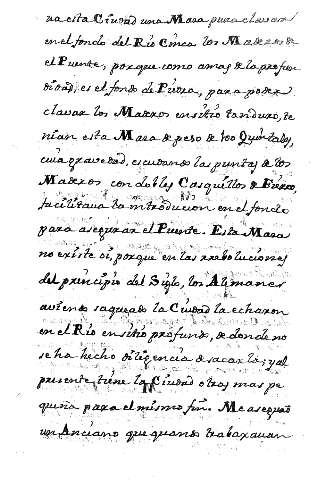 va esta Ciudad una Masa para clavar
en el fondo del Rio Cinca los Maderos de
el Puente, porque como amas de la profun
didad, es el fondo de Piedra, para poder
clavar los Maderos en sitio tan duro, te
nian esta Masa de peso de 100 Quintales,
cuia gravedad, escudando las puntas de los
Maderos con dobles Casquillos de Fierro,
facilitava la introducion en el fondo
para asegurar el Puente. Esta Masa
no existe oi, porque en las rreboluciones
del principio del Siglo, los Alimanes
aviendo saqueado la Ciudad la echaron
en el Rio en sitio profundo, de donde no
se ha hecho diligencia de sacarla; y al
presente tiene la Ciudad otras mas pe
queña para el mismo fin. Me aseguró
un Anciano que quando trabaxavan